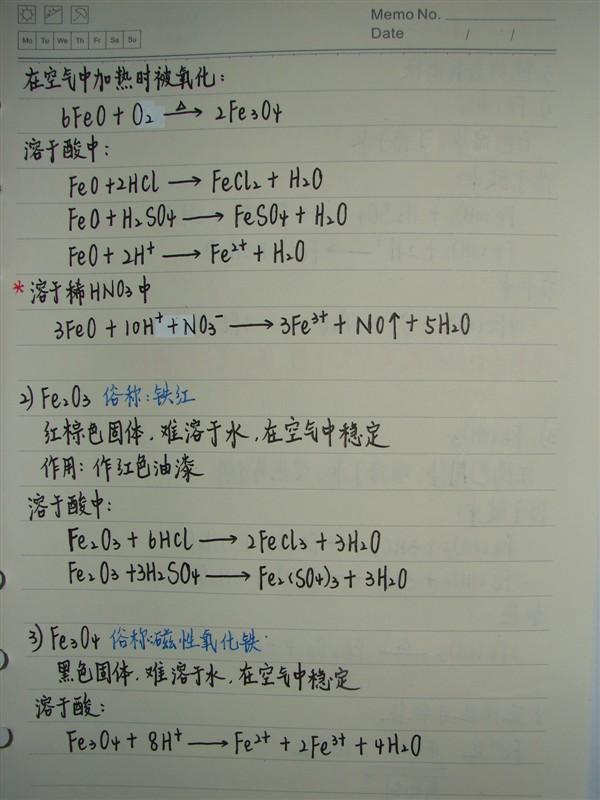 Memo No.
Mo Tu We Th Fr Sa Su
Date / /
在空气中加热时被氧化:
6FeO + O₂ —△→ 2Fe₃O₄
溶于酸中:
FeO + 2HCl → FeCl₂ + H₂O
FeO + H₂SO₄ → FeSO₄ + H₂O
FeO + 2H⁺ → Fe²⁺ + H₂O
* 溶于稀HNO₃中
3FeO + 10H⁺ + NO₃⁻ → 3Fe³⁺ + NO↑ + 5H₂O
2) Fe₂O₃ 俗称:铁红
红棕色固体.难溶于水.在空气中稳定
作用:作红色油漆
溶于酸中:
Fe₂O₃ + 6HCl → 2FeCl₃ + 3H₂O
Fe₂O₃ + 3H₂SO₄ → Fe₂(SO₄)₃ + 3H₂O
3) Fe₃O₄ 俗称:磁性氧化铁.
黑色固体.难溶于水.在空气中稳定
溶于酸:
Fe₃O₄ + 8H⁺ → Fe²⁺ + 2Fe³⁺ + 4H₂O